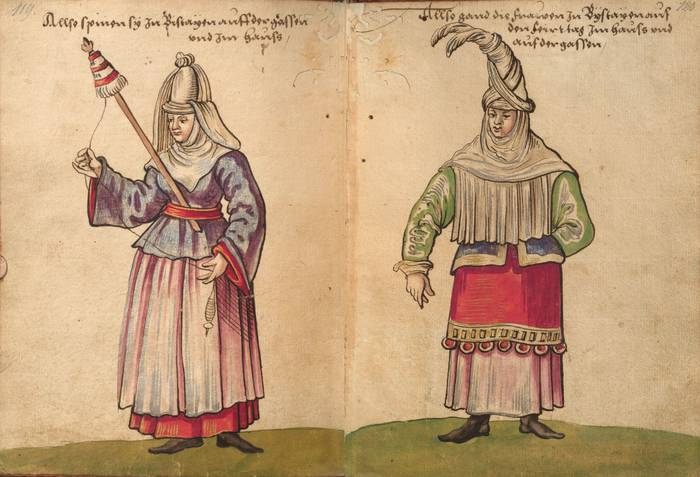 119
Allso spinen sy zu Pistayen auff der gassen
vnd Im hauss
120
Allso gand die frawen In Bystayen auf
den feirtag Im hauss vnd
auf der gassen